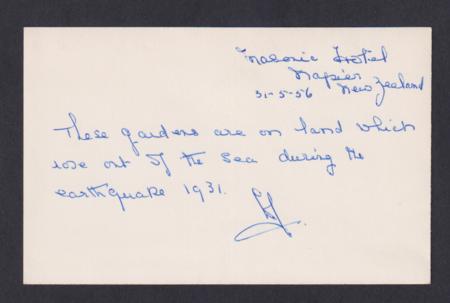 Masonic Hotel
Napier
New Zealand
31-5-56
These gardens are on land which
rose out of the sea during the
earthquake 1931.